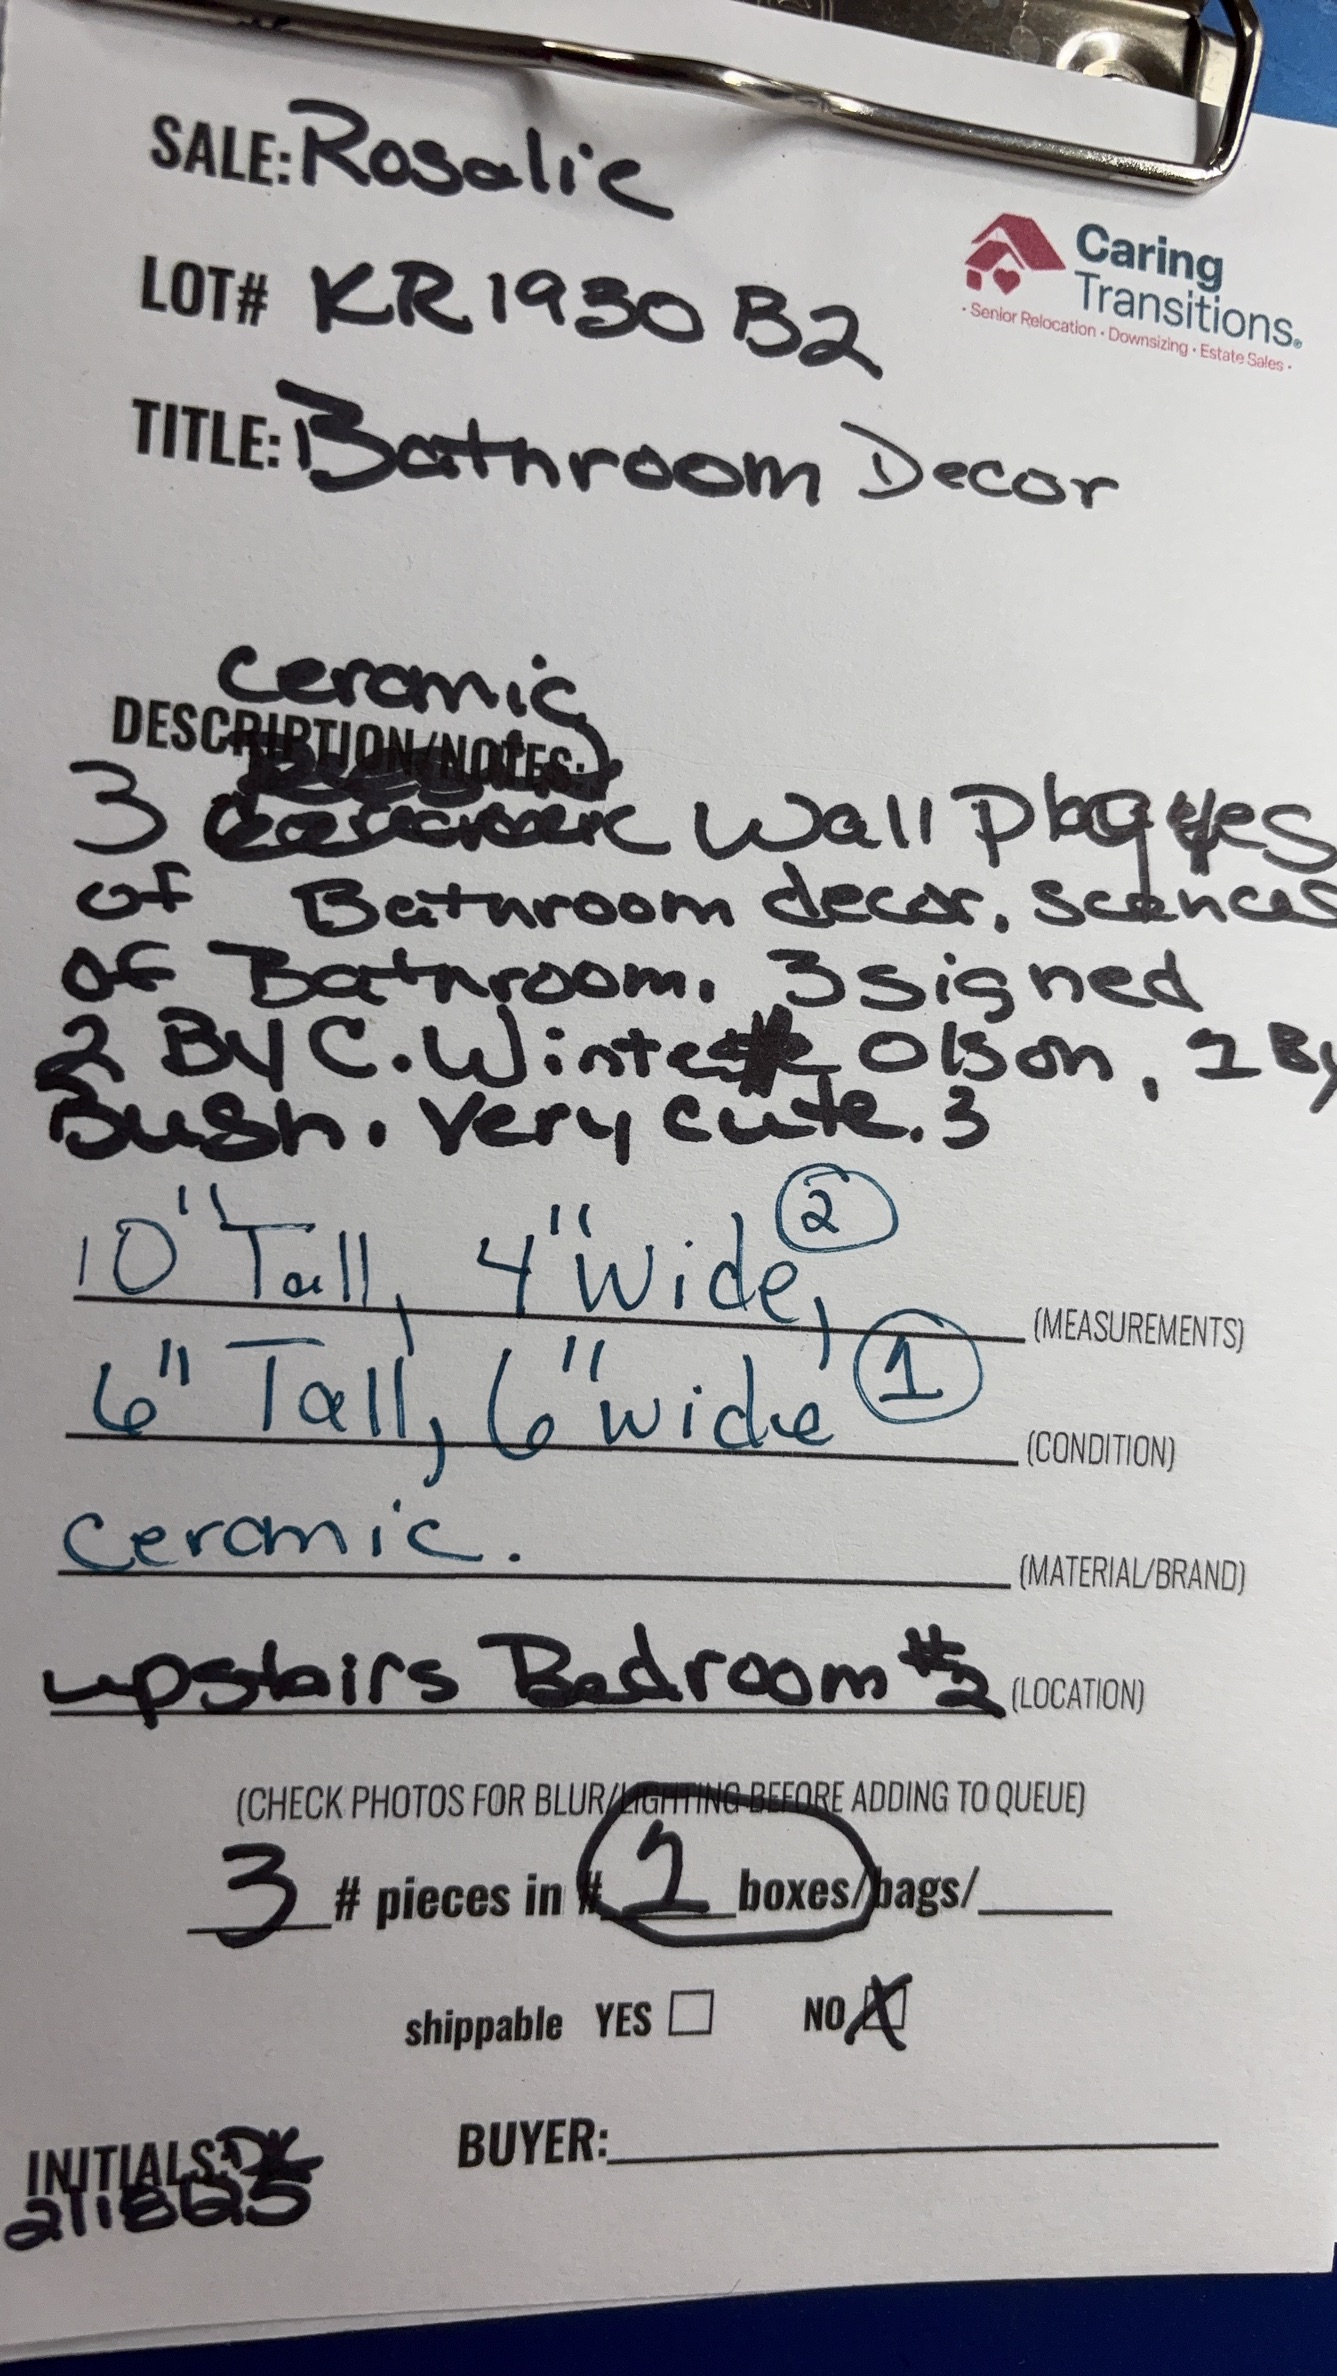 SALE: Rosalie
LOT# KR1930 B2
Caring
Transitions®
• Senior Relocation • Downsizing • Estate Sales •
TITLE: Bathroom Decor
ceramic
DESCRIPTION/NOTES:
3 Wall Plaques
of Bathroom decor. Scences
of Bathroom. 3 signed
2 By C. Winte Olson, 1 By
Bush. Very cute. 3
10" Tall, 4" Wide, 2 (MEASUREMENTS)
6" Tall, 6" wide 1 (CONDITION)
Ceramic. (MATERIAL/BRAND)
upstairs Bedroom #2 (LOCATION)
(CHECK PHOTOS FOR BLUR/LIGHTING BEFORE ADDING TO QUEUE)
3 # pieces in # 1 boxes/bags/
shippable YES NO X
INITIALS: DK BUYER: